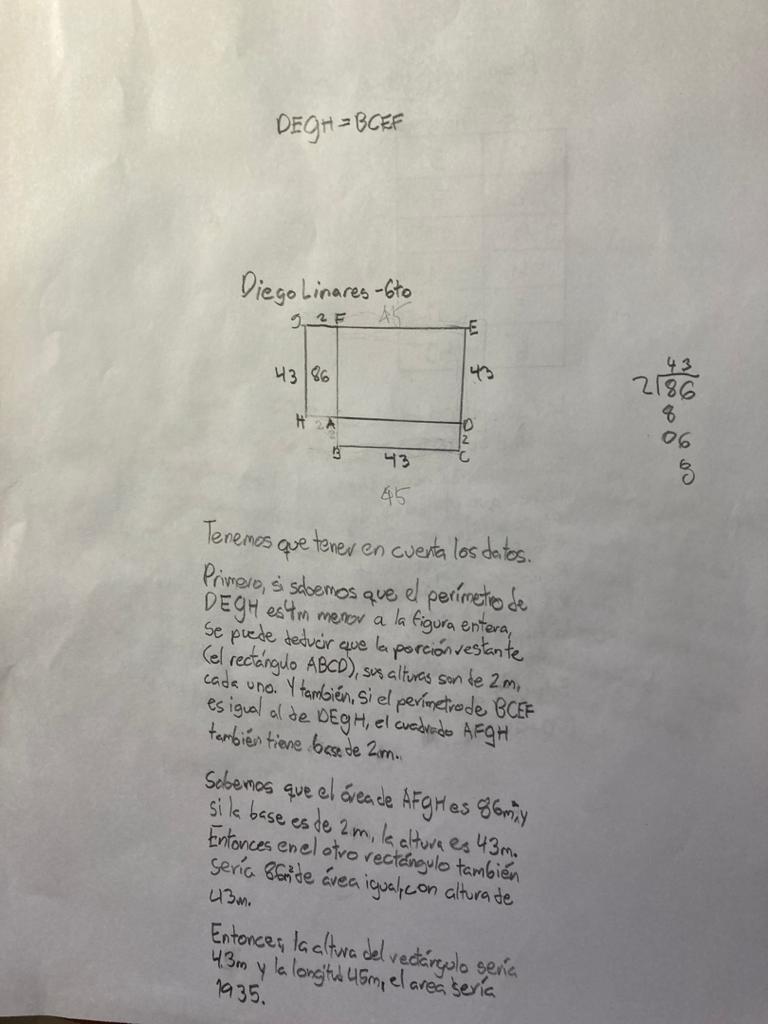 DEGH = BCEF
Diego Linares - 6to
G 2 F 45 E
43 86 43
H 2 A D
2 2
B 43 C
45
43
2 86
8
06
Tenemos que tener en cuenta los datos.
Primero, si sabemos que el perímetro de
DEGH es 4m menor a la figura entera,
se puede deducir que la porción restante
(el rectángulo ABCD), sus alturas son de 2m,
cada uno. Y también, si el perímetro de BCEF
es igual al de DEGH, el cuadrado AFGH
también tiene base de 2m.
Sabemos que el área de AFGH es 86m², y
si la base es de 2m, la altura es 43m.
Entonces en el otro rectángulo también
sería 86m² de área igual, con altura de
43m.
Entonces, la altura del rectángulo sería
43m y la longitud 45m, el area sería
1935.